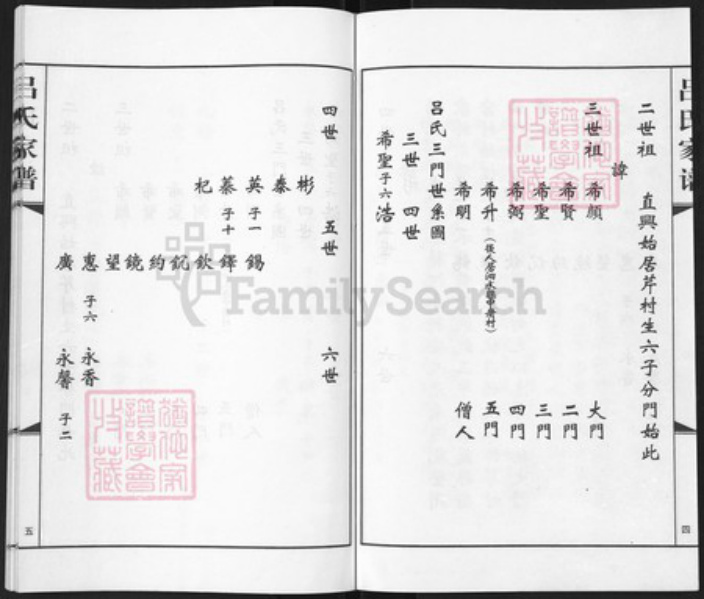 吕氏家谱
二世祖 直興始居芹村生六子分門始此
諱
三世祖 希顏 大門
希賢 二門
希聖 三門
希弼 四門
希升 五門
希明 僧人
吕氏三門世系圖
三世 四世
希聖子六 浩
四
四世 五世 六世
彬
秦
英子一 錫
蓁子十 鐸
杞 欽
鈗
約
鏡
望
惠子六 永香
廣 永馨子二
吕氏家谱
五
FamilySearch
譜學會
收藏
譜學會
收藏